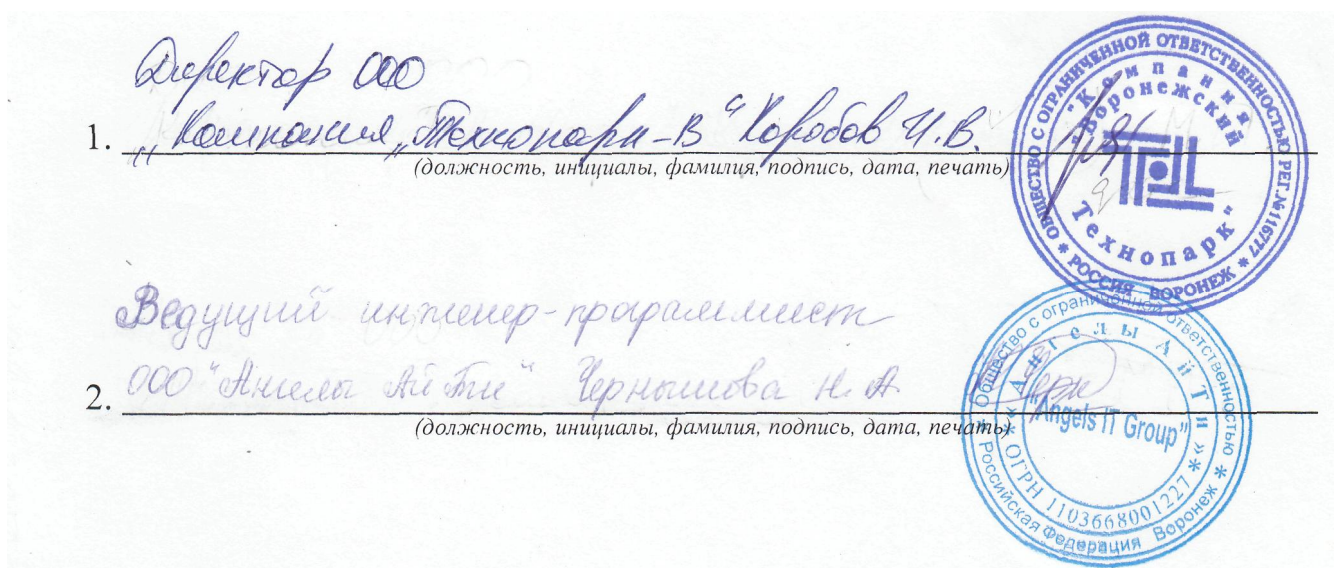 Директор ООО
1. „Компания „Технопарк-В“ Коробов И.В.
(должность, инициалы, фамилия, подпись, дата, печать)
ОБЩЕСТВО С ОГРАНИЧЕННОЙ ОТВЕТСТВЕННОСТЬЮ РЕГ.№116777
* РОССИЯ ВОРОНЕЖ *
"Компания
"Воронежский
Технопарк"
Ведущий инженер-программист
2. ООО "Ангелы АйТи" Чернышова Н.А.
(должность, инициалы, фамилия, подпись, дата, печать)
Общество с ограниченной ответственностью
* Российская Федерация Воронеж *
«Ангелы АйТи»
"Angels IT Group"
* ОГРН 1103668001227 *